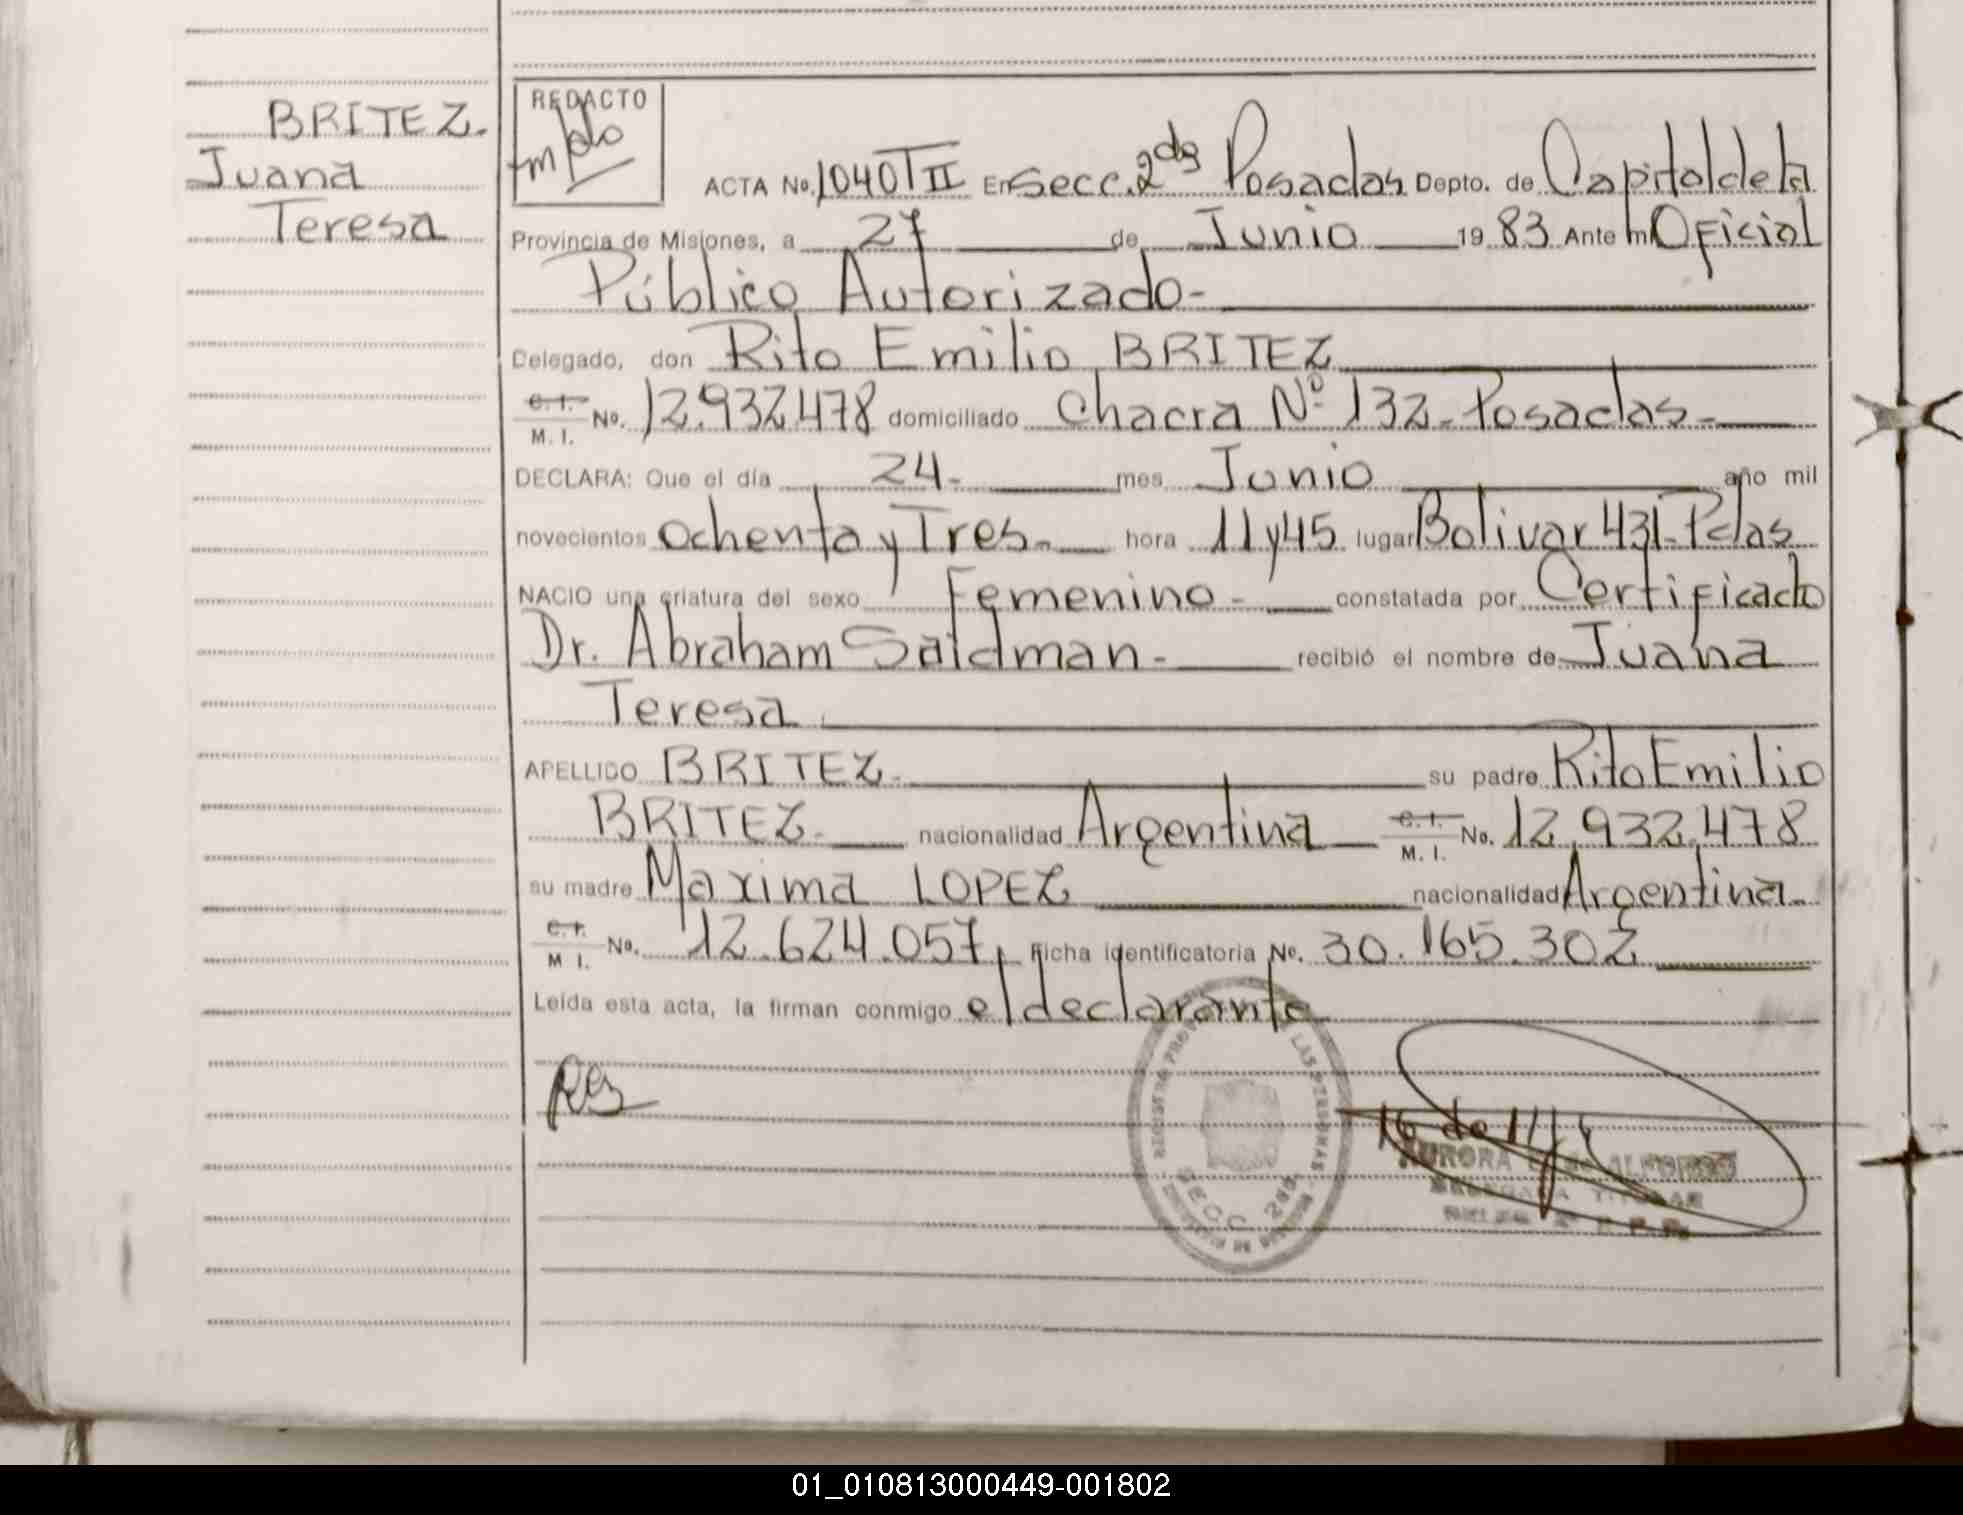 BRITEZ.
Juana
Teresa
REDACTO
ACTA No. 1040 T II En Secc. 2da Posadas Depto. de Capital de la
Provincia de Misiones, a 27 de Junio 1983 Ante mi Oficial
Público Autorizado-
Delegado, don Rito Emilio BRITEZ
C. I. M. I. No. 12.932.478 domiciliado Chacra Nº 132- Posadas-
DECLARA: Que el día 24- mes Junio año mil
novecientos ochenta y Tres- hora 11 y 45 lugar Bolivar 431- Pdas
NACIO una criatura del sexo Femenino- constatada por Certificado
Dr. Abraham Saldman- recibió el nombre de Juana
Teresa
APELLIDO BRITEZ- su padre Rito Emilio
BRITEZ- nacionalidad Argentina C. I. M. I. No. 12.932.478
su madre Maxima LOPEZ nacionalidad Argentina-
C. I. M. I. No. 12.624.057, Ficha identificatoria No. 30.165.302
Leída esta acta, la firman conmigo el declarante
LAS PERSONAS
SECC. 2da
AURORA
01_010813000449-001802